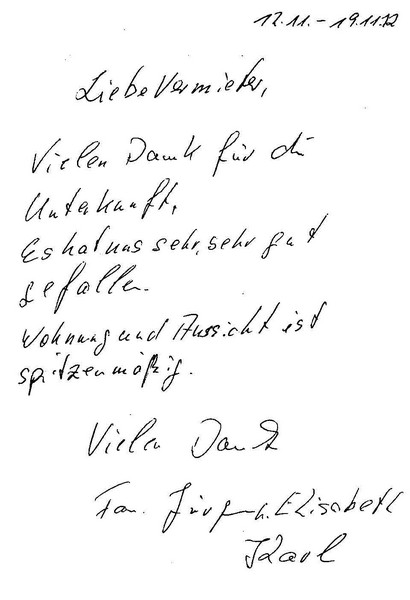 12.11. - 19.11.12
Liebe Vermieter,
Vielen Dank für die
Unterkunft,
Es hat uns sehr, sehr gut
gefallen.
Wohnung und Aussicht ist
spitzenmäßig.
Vielen Dank
Fam. Jürgen u. Elisabeth
Karl